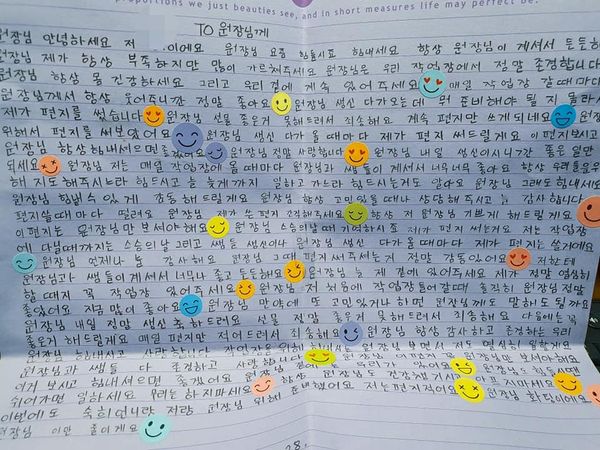 proportions we just beauties see, and in short measures life may perfect be.
TO 원장님께
원장님 안녕하세요 저 이에요 원장님 요즘 힘드시죠 힘내세요 항상 원장님이 계셔서 든든하
원장님 제가 항상 부족하지만 많이 가르쳐주세요 원장님은 우리 작업장에서 정말 존경합니다
원장님 항상 몸 건강하세요 그리고 우리 곁에 계속 있어주세요 매일 작업장 갈때마다
원장님께서 항상 웃어주니깐 정말 좋아요 원장님 생신 다가오는데 뭐 준비해야 될 지 몰라서
제가 편지를 썼습니다 원장님 선물 좋은거 못해드려서 죄송해요 계속 편지만 쓰게되네요 원장님
위해서 편지를 써보았어요 원장님 생신 다가 올때마다 제가 편지 써드릴게요 이편지보시고
원장님 항상 힘내셨으면 좋겠어요 원장님 정말 사랑합니다 원장님 내일 생신이시니깐 좋은 일만
되세요 원장님 저는 매일 작업장에 올 때마다 원장님과 쌤들이 계셔서 너무너무 좋아요 항상 우리들위
해 지도해주시느라 힘드시고 늘 늦게까지 일하고 가느라 힘드시는거도 알아요 원장님 그래도 힘내세요
원장님 힘낼수 있게 감동해드릴게요 원장님 항상 고민있을때나 상담해주시고 늘 감사합니다
편지쓸때마다 떨려요 원장님 제가 쓴 편지 간직해주세요 항상 저 원장님 기쁘게 해드릴게요
이편지는 원장님만 보셔야해요 원장님 스승의날때 기억하시죠 제가 편지 써는거요 저는 작업장
에 다닐때까지는 스승의 날 그리고 쌤들 생신이나 원장님 생신 다가 올 때마다 제가 편지는 쓸거에요
원장님 언제나 늘 감사해요 원장님 그때 편지써주시는거 정말 감동있어요 저한테
원장님과 쌤들이 계셔서 너무나 좋고 든든해요 원장님 늘 제 곁에 있어주세요 제가 정말 엄청히
할 때지 꼭 작업장 있어주세요 원장님 저 처음에 작업장들어갈때 솔직히 원장님 정말
좋았어요 지금 많이 좋아요 원장님 만약에 또 고민있거나 하면 원장님께도 말해도 될까요
원장님 내일 정말 생신 축하드려요 선물 정말 좋은거 못해드려서 죄송해요 다음에는
좋은거 해드릴게요 매일 편지만 적어드려서 죄송해요 원장님 항상 감사하고 존경하는 우리
원장님 힘내시고 사랑합니다 작업장을 위해 원장님 보면서 저도 열심히 일할게요
원장님과 쌤들 다 존경하고 사랑합니다 원장님 이편지 원장님만 보셔야해요
이거 보시고 힘내셨으면 좋겠어요 원장님 곁에 늘 우리가 있어요 원장님도 힘들시면
쉬어가면 일하세요 무리는 하지마세요 항상 원장님도 건강챙기시고 아프지마세요
이번에도 원장님 위해 준비했어요 저는편지적어요 원장님 화팅이에요
원장님 이만 줄이게요
28.